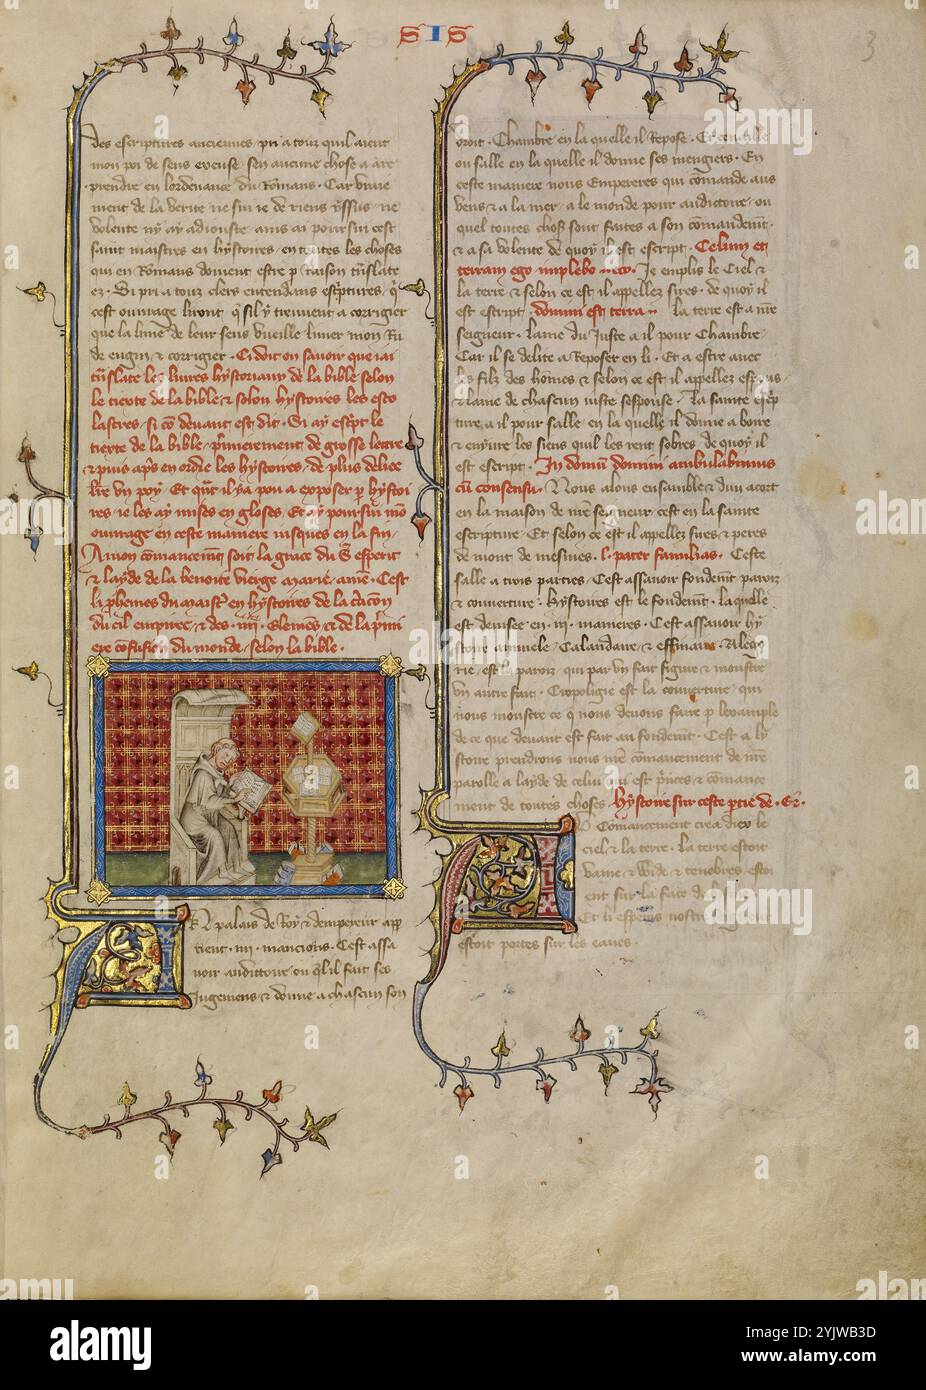 SIS
3
des escriptures anciennes. pri a touz quil aient
mon poi de sens excuse. sen aucune chose a are
prendre en lordenance du Romans. Car vraie
ment de la verite ne sui ie de riens yssus. ne
volente ny ay adiouste. ains ai poursui cest
saint maistres en hystoires. en toutes les choses
qui en Romans doivent estre p raison tnslate
ez. Si pri a touz clers entendans escptures. q
cest ouvrage liront. q sil y treuvent a corrigier
que la lime de leur sens vueille limer mon Ru
de engin. & corrigier. Ci dit on savoir que iai
tnslate lez livres hystoriaux de la bible selon
le tixte de la bible & selon hystoires les esco
lastres. si co devant est dit. Si ay escpt le
tixte de la bible. pmierement de grosse lettre
& puis aps en ordre les hystoires. de plus delice
lre un poy. Et qnt il ya pou a exposer p hystoi
res. ie les ay mises en gloses. Et ay poursui mo
ouvrage en ceste maniere iusques en la fin.
A mon comancemt soit la grace du S esperit
& layde de la benoite vierge marie. ame. Cest
li phemes du maistr en hystoires de la cracon
du ciel empiree. & des .iiii. elemes. et de la pmi
ere cofusion du monde. selon la bible.
palais de Roy & dempereur app
tient .iiii. mancions. Cest assa
voir auditoire. ou ql il fait ses
Jugemens & donne a chascun son
droit. Chambre en la quelle il repose. Cenaille
ou salle en la quelle il donne ses mengiers. En
ceste maniere nous Empereres qui comande aus
vens & a la mer. a le monde pour auditoire. ou
quel toutes chos sont faites a son comandemt
& a sa volente de quoy il est escript. Celum et
terram ego implebo. Je emplis le Ciel &
la terre & selon ce est il appellez sires. de quoy il
est escript. domini est terra. La terre est a nre
seigneur. Lame du Juste a il pour Chambre.
Car il se delite a Reposer en li. Et a estre avec
les filz des homes & selon ce est il appellez
& lame de chascun iuste sespouse. La sainte escp
ture a il pour salle. en la quelle il donne a boire
& enyvre les siens quil les rent sobres de quoy il
est escript. In domu domini ambulabimus
cu consensu. Nous alons ensamble & dun acort
en la maison de nre seigneur. cest en la sainte
escripture. Et selon ce est il appellez sires & peres
de mesnies. pater familias. Ceste
salle a trois parties. Cest assavoir fondemt. paroiz
& couverture. Hystoires est le fondemt. laquelle
est devisee en .iii. manieres. Cest assavoir hy
stoire annuele. Calandaire. & effimaire. Alego
rie. est la paroiz qui par un fait figure & monstre
un autre fait. Tropoligie est la couverture. qui
nous monstre ce q nous devons faire p lexample
de ce que devant est fait au fondemt. Cest a hy
stoire prendrons nous nre comancement de nre
parolle a layde de celui qui est prices & comance
ment de toutes choses. Hystoire sur ceste ptie de
Comancement crea diex le
ciel & la terre. La terre estoit
vaine & Wide & tenebres. estoi
ent sur la face de
Et li esperis nostre
estoit portes sur les eaues.
alamy
alamy
Image ID: 2YJWB3D
www.alamy.com